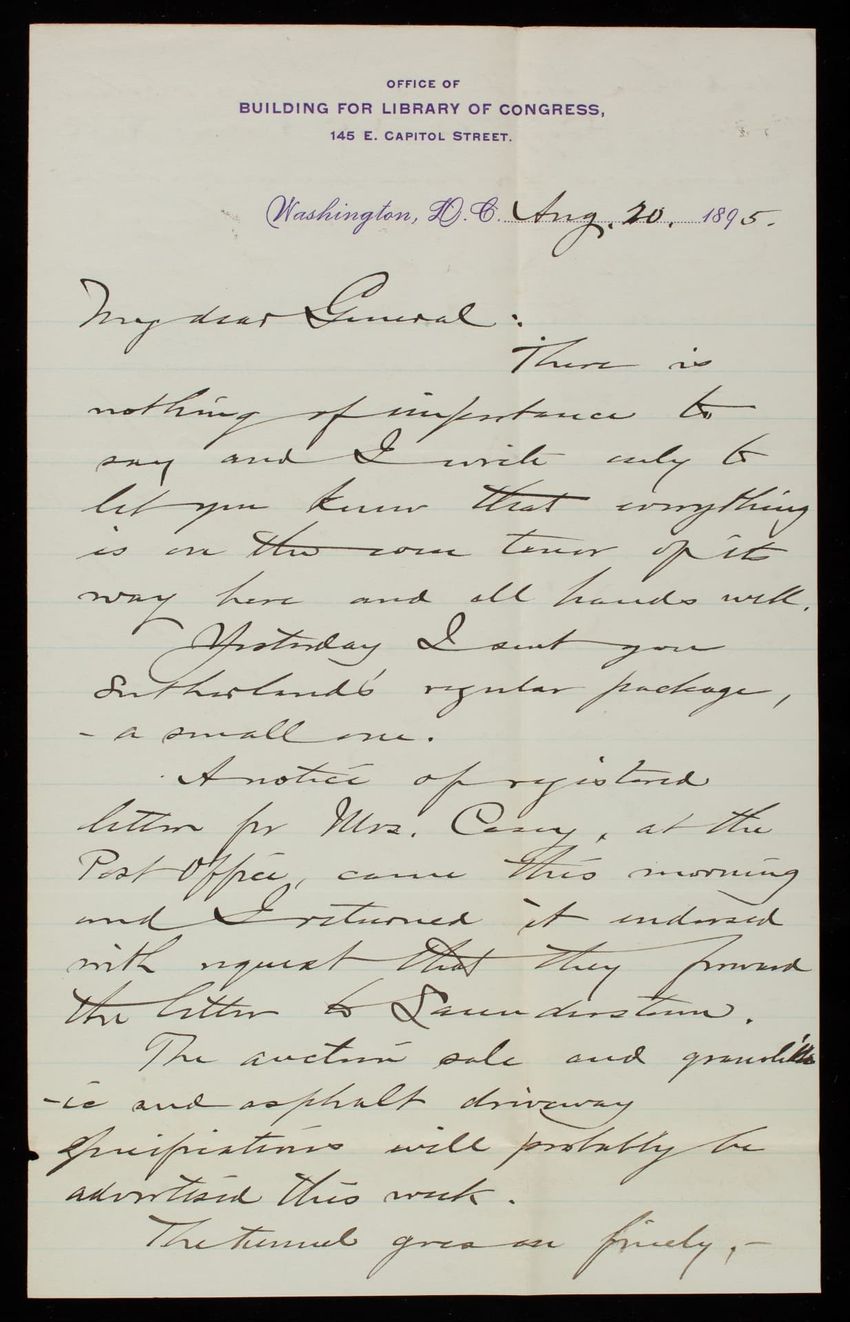 OFFICE OF
BUILDING FOR LIBRARY OF CONGRESS,
145 E. CAPITOL STREET.
Washington, D.C. Aug. 20. 1895.
My dear General:
There is
nothing of importance to
say and I write only to
let you know that everything
is on the even tenor of its
way here and all hands well.
Yesterday I sent you
Sutherland's regular package,
- a small one.
A notice of registered
letter for Mrs. Casey, at the
Post Office, came this morning
and I returned it endorsed
with request that they forward
the letter to Saunderstown.
The auction sale and granolith
-ic and asphalt driveway
specifications will probably be
advertised this week.
The tunnel goes on finely,-